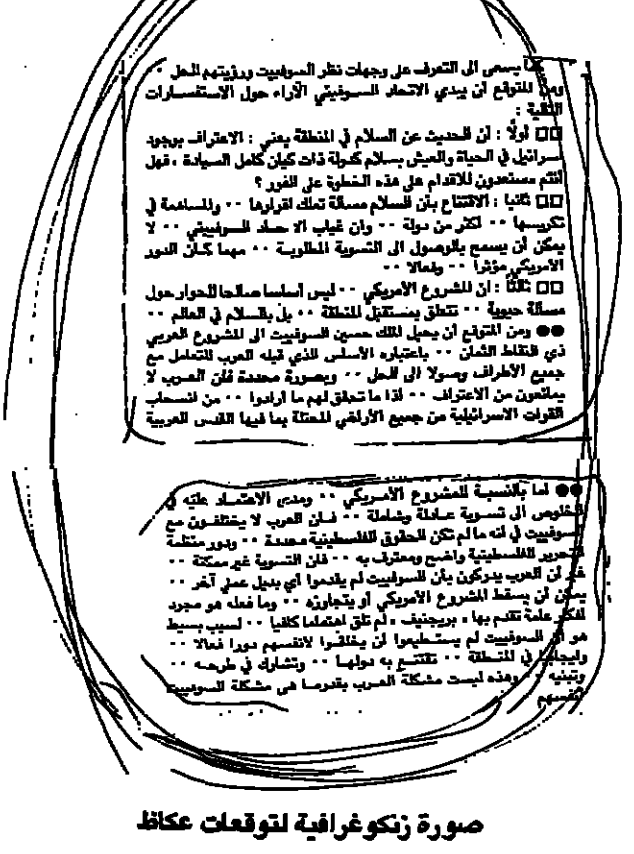 كما يسعى الى التعرف على وجهات نظر السوفييت ورؤيتهم للحل ٠٠
ومن المتوقع أن يبدي الاتحاد السـوفييتي الآراء حول الاستفسـارات
التالية :
□□ أولًا : أن الحديث عن السلام في المنطقة يعني : الاعتراف بوجود
اسرائيل في الحياة والعيش بسلام كدولة ذات كيان كامل السيادة ، فهل
أنتم مستعدون للاقدام على هذه الخطوة على الفور ؟
□□ ثانيا : الاقتناع بأن السلام مسألة تملك اقرارها ٠٠ والمساهمة في
تكريسـها ٠٠ اكثر من دولة ٠٠ وان غياب الاتحـاد السـوفييتي ٠٠ لا
يمكن أن يسمح بالوصول الى التسوية المطلوبـة ٠٠ مهما كـان الدور
الأمريكي مؤثرا ٠٠ وفعالا ٠٠
□□ ثالثًا : ان المشروع الأمريكي ٠٠ ليس أساسا صالحا للحوار حول
مسألة حيوية ٠٠ تتعلق بمستقبل المنطقة ٠٠ بل بالسلام في العالم ٠٠
●● ومن المتوقع أن يحيل الملك حسين السوفييت الى المشروع العربي
ذي النقاط الثمان ٠٠ باعتباره الأساس الذي قبله العرب للتعامل مع
جميع الأطراف وصولا الى الحل ٠٠ وبصورة محددة فان العـرب لا
يمانعون من الاعتراف ٠٠ اذا ما تحقق لهم ما أرادوا ٠٠ من انسـحاب
القوات الاسرائيلية من جميع الأراضي المحتلة بما فيها القدس العربية
●● اما بالنسبـة للمشروع الأمـريكي ٠٠ ومدى الاعتمـاد عليه في
الخلوص الى تسـوية عـادلة وشـاملة ٠٠ فـان العرب لا يختلفـون مع
السوفييت في أنه ما لم تكن الحقوق الفلسطينية محددة ٠٠ ودور منظمة
التحرير الفلسطينية واضح ومعترف به ٠٠ فان التسوية غير ممكنة ٠٠
غير أن العرب يدركون بأن السوفييت لم يقدموا أي بديل عملي آخر ٠٠
يمكن أن يسقط المشروع الأمريكي أو يتجاوزه ٠٠ وما فعله هو مجرد
أفكار عامة تقدم بها « بريجنيف » لم تلق اهتماما كافيا ٠٠ لسبب بسيط
هو أن السوفييت لم يسـتطيعوا أن يخلقـوا لانفسهم دورا فعالا ٠٠
وايجابيا في المنـطقة ٠٠ تقتنـع به دولهـا ٠٠ وتشارك في طرحـه ٠٠
وتبنيه ٠٠ وهذه ليست مشكلة العـرب بقدرمـا هى مشكلة السوفييت
أنفسهم
صورة زنكوغرافية لتوقعات عكاظ